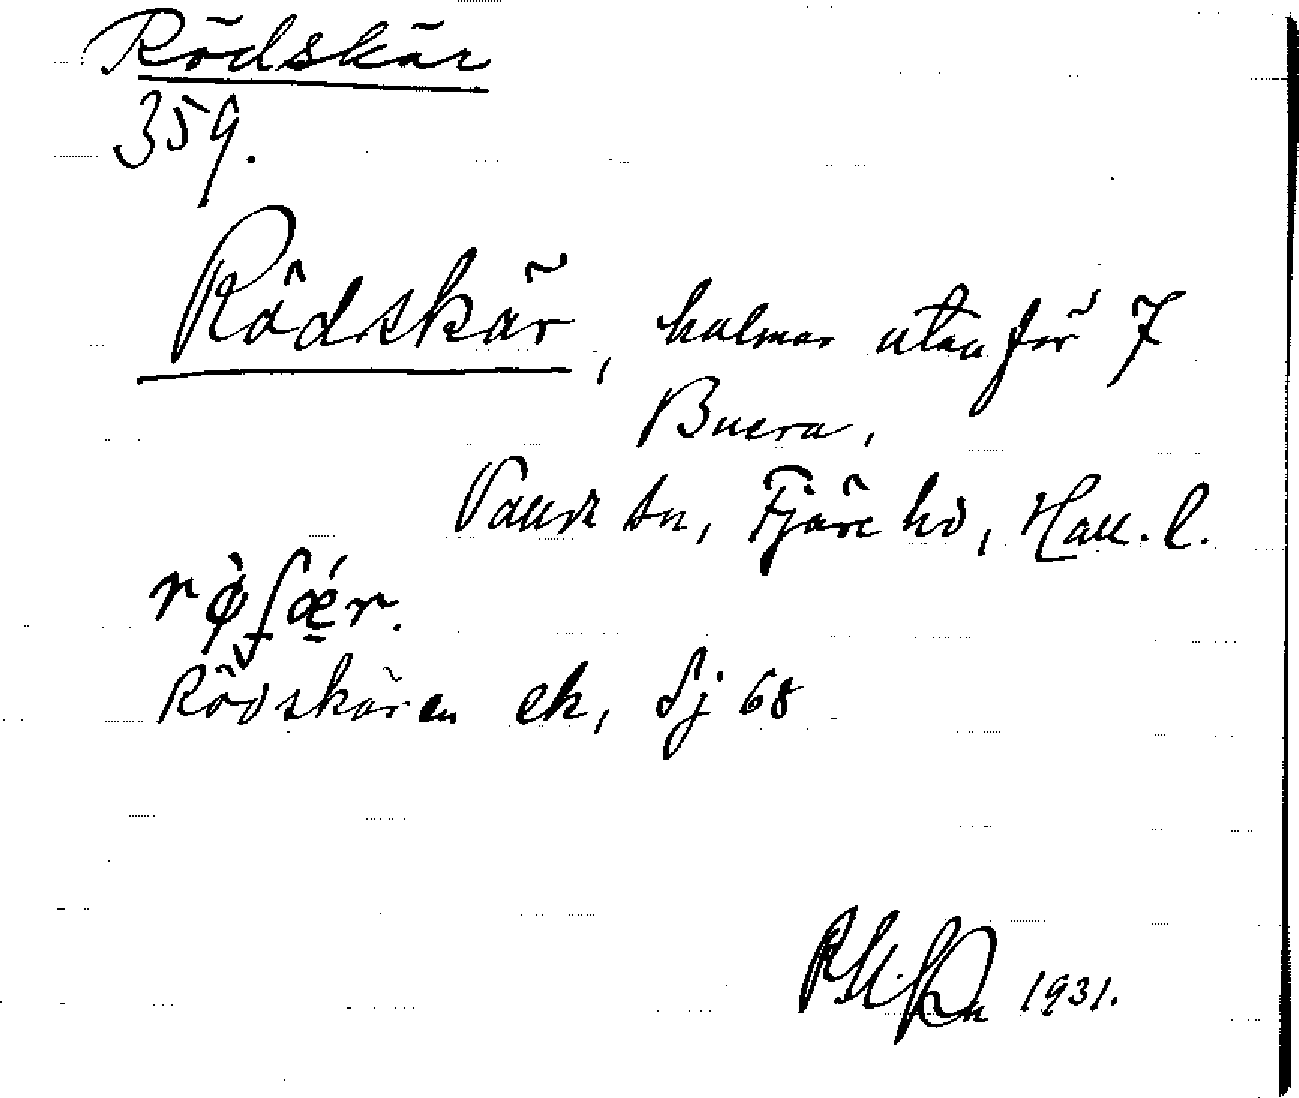 Rödskär
359.
Rödskär, holmar utanför 7
Buera,
Vallda sn, Fjäre hd, Hall. l.
Rödskären ek, Sj 68
1931.